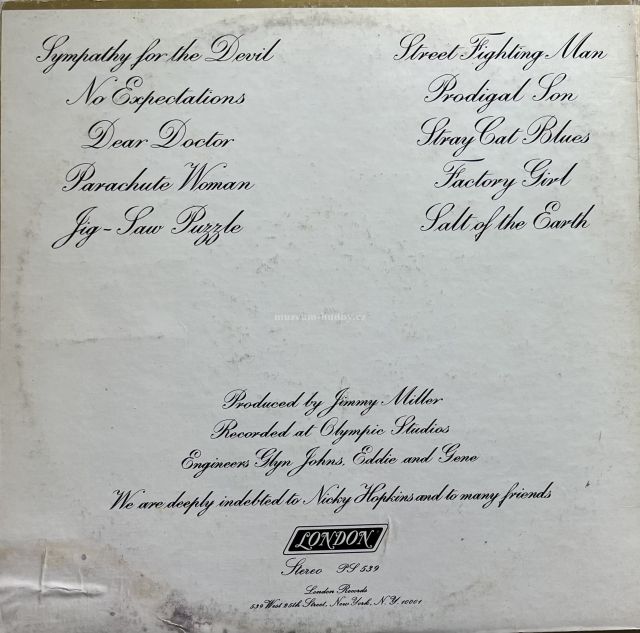 Sympathy for the Devil
No Expectations
Dear Doctor
Parachute Woman
Jig-Saw Puzzle
Street Fighting Man
Prodigal Son
Stray Cat Blues
Factory Girl
Salt of the Earth
Produced by Jimmy Miller
Recorded at Olympic Studios
Engineers Glyn Johns, Eddie and Gene
We are deeply indebted to Nicky Hopkins and to many friends
LONDON
Stereo PS 539
London Records
539 West 25th Street, New York, N.Y. 10001